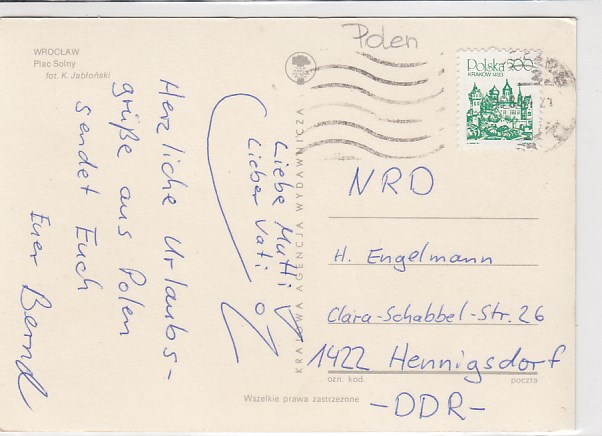 WROCŁAW
Plac Solny
fot. K. Jabłoński
Liebe Mutti
Lieber Vati
Herzliche Urlaubs-
grüße aus Polen
sendet Euch
Euer Bernd
KRAJOWA AGENCJA WYDAWNICZA
Polen
Polska
KRAKÓW 1493
NRD
H. Engelmann
Clara-Schabbel-Str. 26
1422 Hennigsdorf
ozn. kod. poczta
-DDR-
Wszelkie prawa zastrzeżone